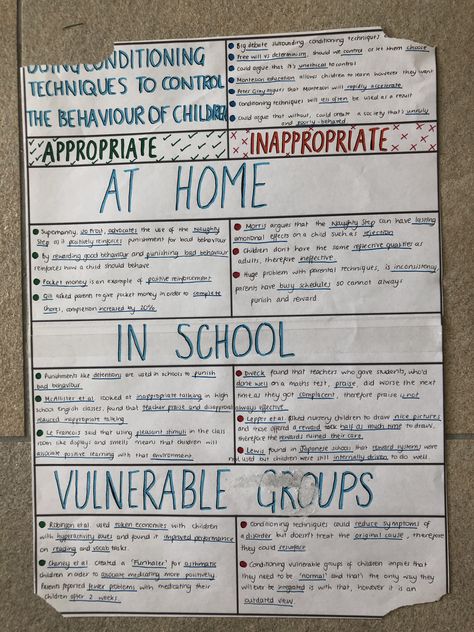 USING CONDITIONING
TECHNIQUES TO CONTROL
THE BEHAVIOUR OF CHILDREN
Big debate surrounding conditioning techniques
Free will vs determinism, should we control or let them choose
could argue that it's unethical to control
Montessori education allows children to learn however they want
Peter Gray argues that Montessori will rapidly accelerate
conditioning techniques will less often be used as a result
could argue that without, could create a society that's unruly
and poorly-behaved.
APPROPRIATE
INAPPROPRIATE
AT HOME
Supernanny, Jo Frost, advocates the use of the Naughty
Step as it positively reinforces punishment for bad behaviour
By rewarding good behaviour and punishing bad behaviour
reinforces how a child should behave
Pocket money is an example of positive reinforcement.
Gill asked parents to give pocket money in order to complete
chores, completion increased by 20%
Morris argues that the Naughty Step can have lasting
emotional effects on a child such as rejection
Children don't have the same reflective qualities as
adults, therefore ineffective.
Huge problem with parental techniques, is inconsistency
parents have busy schedules so cannot always
punish and reward.
IN SCHOOL
Punishments like detentions are used in schools to punish
bad behaviour.
McAllister et al. looked at inappropriate talking in high
school english classes, found that teacher praise and disapproval
reduced inappropriate talking.
Le Francois said that using pleasant stimuli in the class
room like displays and smells means that children will
associate positive learning with that environment.
Dweck found that teachers who gave students, who'd
done well on a maths test, praise, did worse the next
time as they got complacent, therefore praise is not
always effective.
Lepper et al. found nursery children to draw nice pictures
and those offered a reward took half as much time to draw,
therefore the rewards ruined their care.
Lewis found in Japanese schools that reward systems were
not used but children were still internally driven to do well.
VULNERABLE GROUPS
Robinson et al used token economies with children
with hyperactivity issues and found it improved performance
on reading and vocab tasks.
Chaney et al created a 'Funhaler' for asthmatic
children in order to associate medicating more positively.
Parents reported fewer problems with medicating their
children after 2 weeks.
Conditioning techniques could reduce symptoms of
a disorder but doesn't treat the original cause, therefore
they could resurface
Conditioning vulnerable groups of children implies that
they need to be 'normal' and that's the only way they
will ever be integrated is with that, however it is an
outdated view.